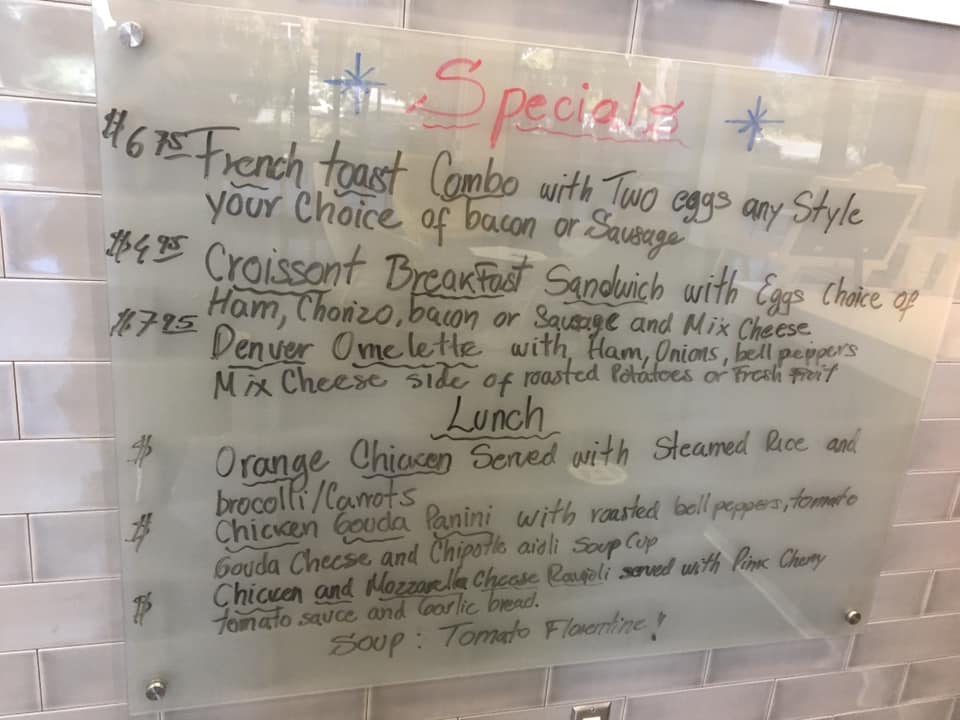 Specials
$6.75 French toast Combo with Two eggs any Style
your Choice of bacon or Sausage
$4.95 Croissont Breakfast Sandwich with Eggs Choice of
Ham, Chorizo, bacon or Sausage and Mix Cheese
$7.95 Denver Omelette with, Ham, Onions, bell peppers
Mix Cheese side of roasted Potatoes or Fresh Fruit
Lunch
$ Orange Chicken Served with Steamed Rice and
brocolli/Carrots
$ Chicken Gouda Panini with roasted bell peppers, tomato
Gouda Cheese and Chipotle aioli Soup Cup
$ Chicken and Mozzarella Cheese Ravioli served with Pink Cherry
tomato sauce and Garlic bread.
Soup: Tomato Florentine!